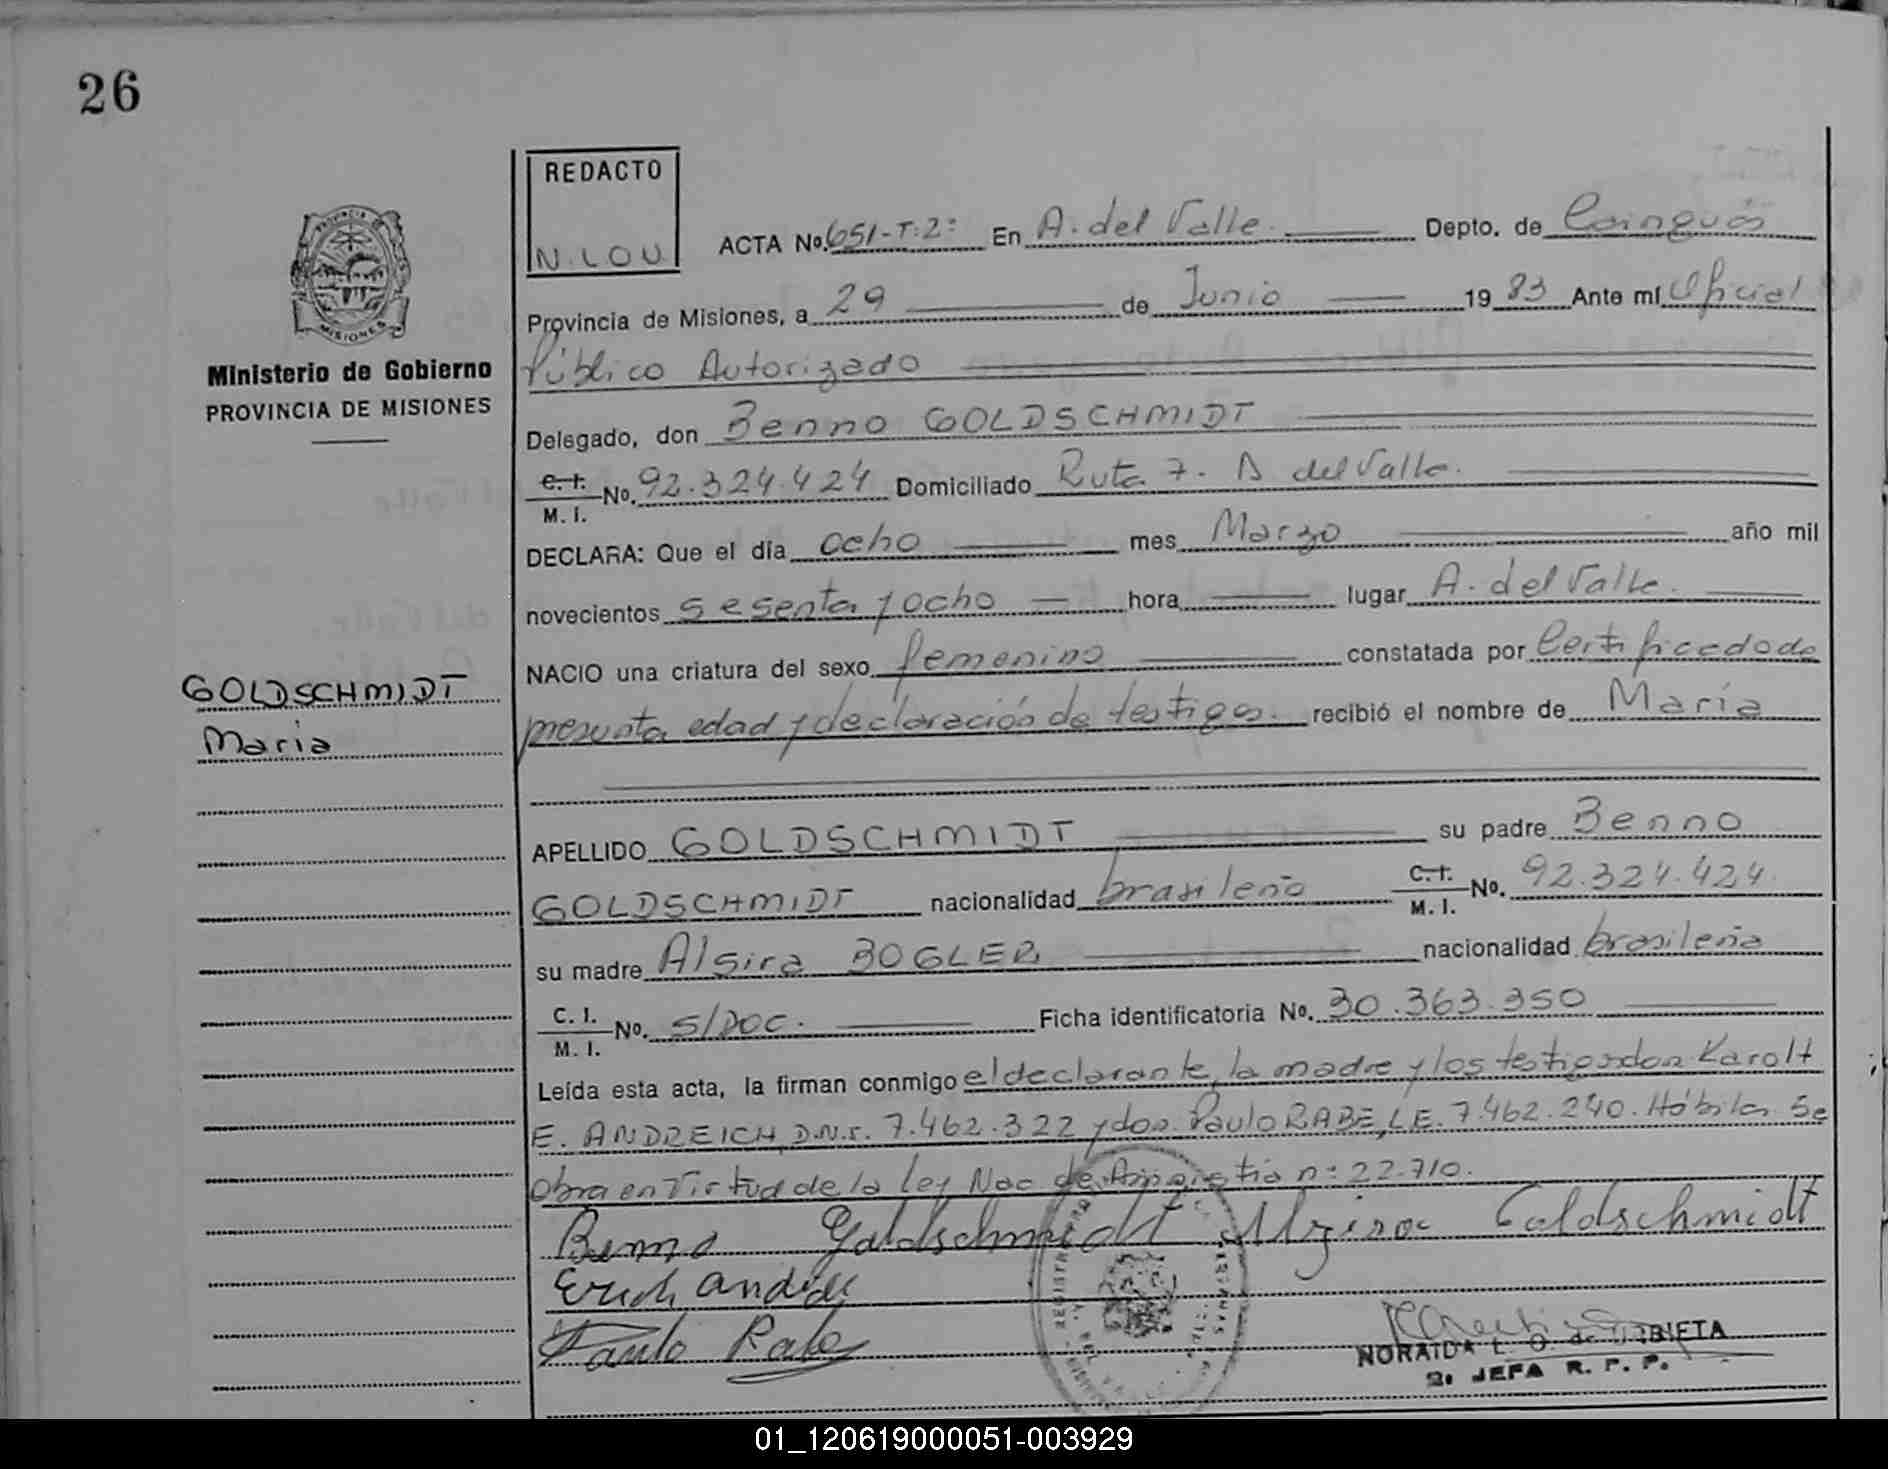 26
REDACTO
N. LOU
PROVINCIA DE
MISIONES
Ministerio de Gobierno
PROVINCIA DE MISIONES
ACTA No. 651-T:2º En A. del Valle. Depto. de Cainguás
Provincia de Misiones, a 29 de Junio 19 83 Ante mí Oficial
Público Autorizado
Delegado, don Benno GOLDSCHMIDT
C. I. / M. I. No. 92.324.424 Domiciliado Ruta 7. A del Valle.
DECLARA: Que el día ocho mes Marzo año mil
novecientos sesenta y ocho hora lugar A. del Valle.
NACIO una criatura del sexo femenino constatada por Certificado de
presunta edad y declaración de testigos. recibió el nombre de María
GOLDSCHMIDT
Maria
APELLIDO GOLDSCHMIDT su padre Benno
GOLDSCHMIDT nacionalidad brasileño C. I. / M. I. No. 92.324.424
su madre Alsira BOGLER nacionalidad brasileña
C. I. / M. I. No. S/DOC. Ficha identificatoria No. 30.363.350
Leída esta acta, la firman conmigo el declarante, la madre y los testigos don Karolt
E. ANDREICH, D.N.I. 7.462.322 y don Paulo RABE, L.E. 7.462.240. Hábiles. Se
obra en Virtud de la Ley Nac de Amnistía n: 22.710.
Benno Galdschmidt Alzira Galdschmidt
Erich
Paulo Rabe
NORAIDA L. O. de URBIETA
2ª JEFA R. P. P.
01_120619000051-003929